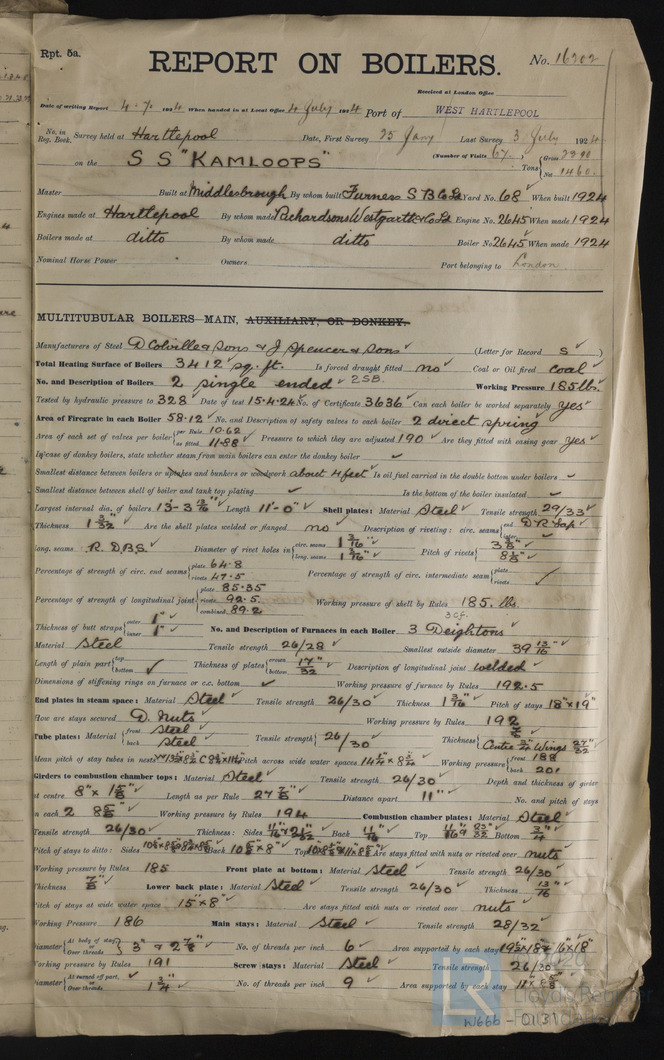 Rpt. 5a.
REPORT ON BOILERS.
No. 16202
Received at London Office
Date of writing Report 4.7.1924 When handed in at Local Office 4 July 1924 Port of WEST HARTLEPOOL
No. in Reg. Book. Survey held at Hartlepool Date, First Survey 25 Jany Last Survey 3 July 1924
on the S S "KAMLOOPS" (Number of Visits 67) Tons Gross Net 1460
Master Built at Middlesbrough By whom built Furness S B Co Ld Yard No. 68 When built 1924
Engines made at Hartlepool By whom made Richardsons Westgarth & Co Ld Engine No. 2645 When made 1924
Boilers made at ditto By whom made ditto Boiler No. 2645 When made 1924
Nominal Horse Power Owners Port belonging to London
MULTITUBULAR BOILERS—MAIN, AUXILIARY, OR DONKEY.
Manufacturers of Steel D Colville & Sons & J Spencer & Sons (Letter for Record S)
Total Heating Surface of Boilers 3412 sq. ft. Is forced draught fitted no Coal or Oil fired coal
No. and Description of Boilers 2 single ended 2 SB. Working Pressure 185 lbs
Tested by hydraulic pressure to 328 Date of test 15.4.24 No. of Certificate 3636 Can each boiler be worked separately yes
Area of Firegrate in each Boiler 58.12 No. and Description of safety valves to each boiler 2 direct spring
Area of each set of valves per boiler per Rule 10.62 as fitted 11.88 Pressure to which they are adjusted 190 Are they fitted with easing gear yes
In case of donkey boilers, state whether steam from main boilers can enter the donkey boiler
Smallest distance between boilers or uptakes and bunkers or woodwork about 4 feet Is oil fuel carried in the double bottom under boilers
Smallest distance between shell of boiler and tank top plating Is the bottom of the boiler insulated
Largest internal dia. of boilers 13'-3 9/16" Length 11'-0" Shell plates: Material Steel Tensile strength 29/33
Thickness 1 3/32" Are the shell plates welded or flanged no Description of riveting: circ. seams end D R Lap inter.
long. seams R. D.B.S. Diameter of rivet holes in circ. seams 1 3/16" long. seams 1 3/16" Pitch of rivets
Percentage of strength of circ. end seams plate 64.8 rivets 47.5 Percentage of strength of circ. intermediate seam plate rivets
Percentage of strength of longitudinal joint plate 85.35 rivets 92.5 combined 89.2 Working pressure of shell by Rules 185. lbs.
Thickness of butt straps outer 1" inner 1" No. and Description of Furnaces in each Boiler 3 Deightons 3 cf.
Material Steel Tensile strength 26/28 Smallest outside diameter 39 13/16"
Length of plain part top bottom Thickness of plates crown bottom 17/32" Description of longitudinal joint welded
Dimensions of stiffening rings on furnace or c.c. bottom Working pressure of furnace by Rules 192.5
End plates in steam space: Material Steel Tensile strength 26/30 Thickness 1 3/16" Pitch of stays 18" x 19"
How are stays secured D. Nuts Working pressure by Rules 192
Tube plates: Material front Steel back Steel Tensile strength 26/30 Thickness Centre Wings
Mean pitch of stay tubes in nests Pitch across wide water spaces Working pressure front 188 back 201
Girders to combustion chamber tops: Material Steel Tensile strength 26/30 Depth and thickness of girder
at centre Length as per Rule Distance apart 11" No. and pitch of stays
in each 2 8 5/8" Working pressure by Rules 194 Combustion chamber plates: Material Steel
Tensile strength 26/30 Thickness: Sides Back 11/16" Top Bottom 3/4"
Pitch of stays to ditto: Sides Back Top Are stays fitted with nuts or riveted over nuts
Working pressure by Rules 185 Front plate at bottom: Material Steel Tensile strength 26/30
Thickness 7/8" Lower back plate: Material Steel Tensile strength 26/30 Thickness 13/16"
Pitch of stays at wide water space 15" x 8" Are stays fitted with nuts or riveted over nuts
Working Pressure 186 Main stays: Material Steel Tensile strength 28/32
Diameter At body of stay or Over threads 3" & 2 7/8" No. of threads per inch 6 Area supported by each stay
Working pressure by Rules 191 Screw stays: Material Steel Tensile strength 26/30
Diameter At turned off part, or Over threads 1 3/4" No. of threads per inch 9 Area supported by each stay
LR
2020
Lloyd's Register
Foundation
W666-0131